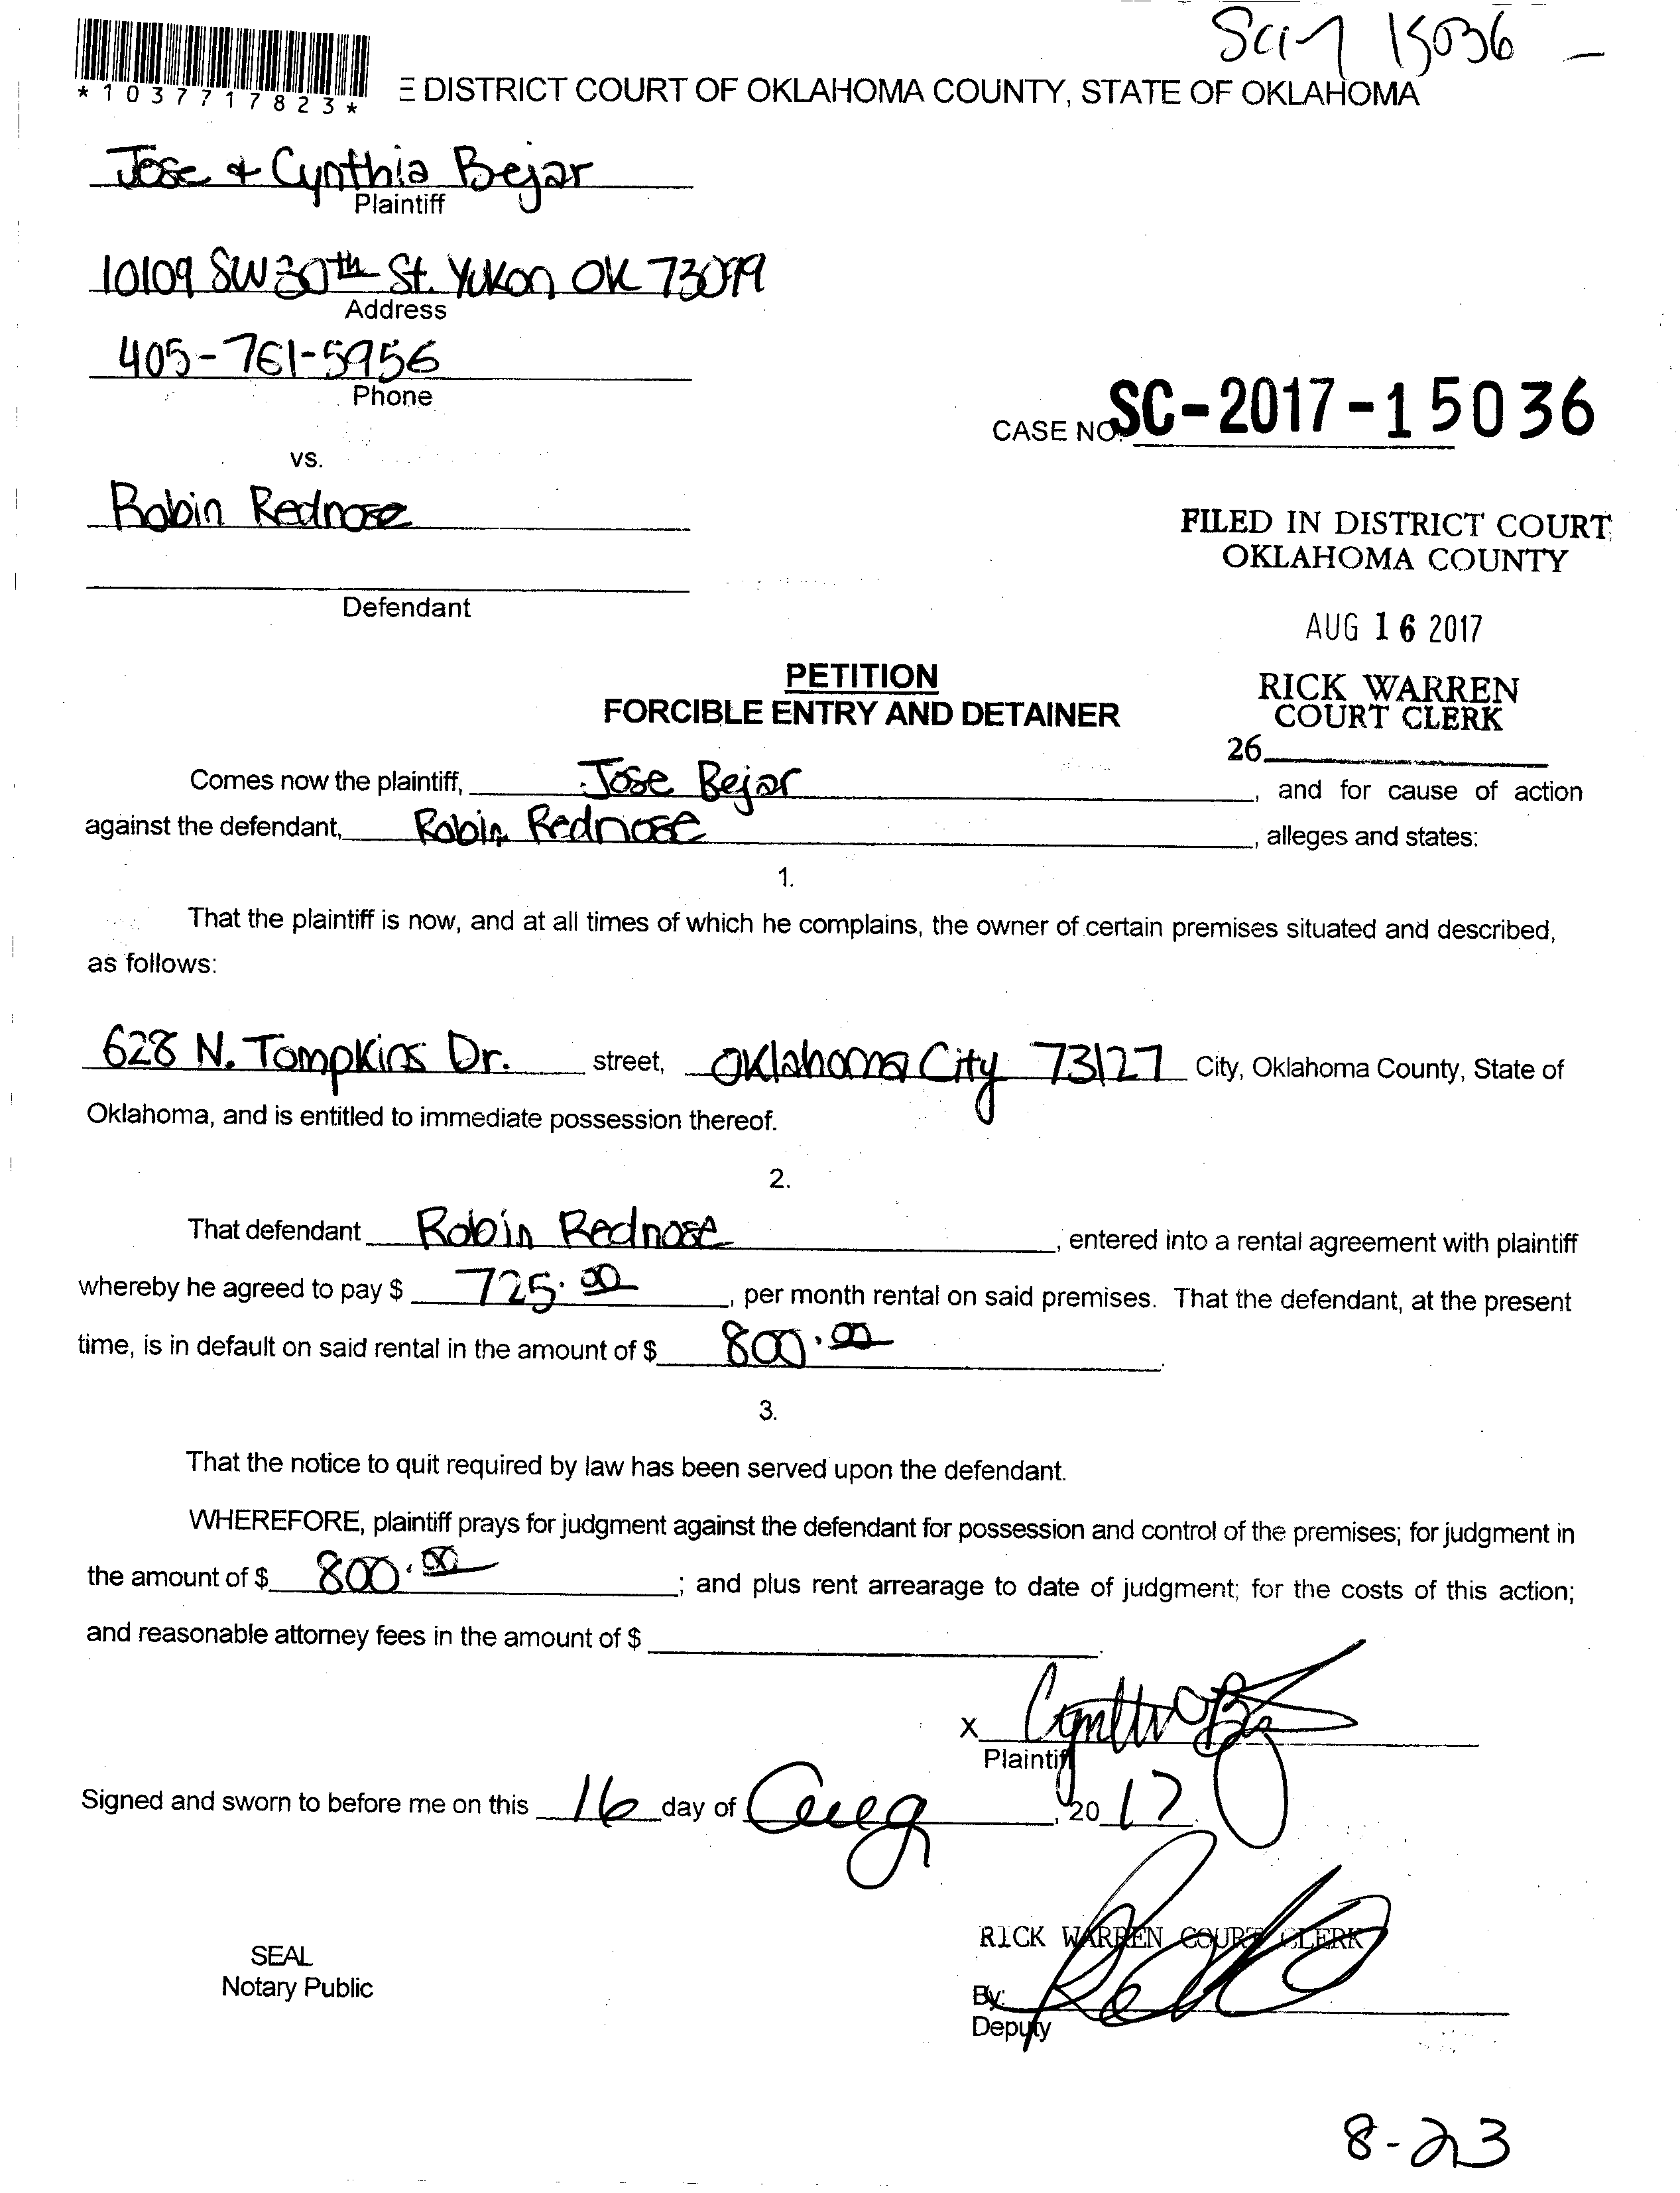 SC17 15036 -
*1037717823*
E DISTRICT COURT OF OKLAHOMA COUNTY, STATE OF OKLAHOMA
Jose + Cynthia Bejar
Plaintiff
10109 SW 30th St. Yukon OK 73099
Address
405-761-5956
Phone
CASE NO. SC-2017-15036
vs.
Robin Rednose
FILED IN DISTRICT COURT
OKLAHOMA COUNTY
Defendant
AUG 16 2017
PETITION
FORCIBLE ENTRY AND DETAINER
RICK WARREN
COURT CLERK
26
Comes now the plaintiff, Jose Bejar, and for cause of action
against the defendant, Robin Rednose, alleges and states:
1.
That the plaintiff is now, and at all times of which he complains, the owner of certain premises situated and described,
as follows:
628 N. Tompkins Dr. street, Oklahoma City 73127 City, Oklahoma County, State of
Oklahoma, and is entitled to immediate possession thereof.
2.
That defendant Robin Rednose, entered into a rental agreement with plaintiff
whereby he agreed to pay $ 725.00, per month rental on said premises. That the defendant, at the present
time, is in default on said rental in the amount of $ 800.00.
3.
That the notice to quit required by law has been served upon the defendant.
WHEREFORE, plaintiff prays for judgment against the defendant for possession and control of the premises; for judgment in
the amount of $ 800.00; and plus rent arrearage to date of judgment; for the costs of this action;
and reasonable attorney fees in the amount of $ .
X
Plaintiff
Signed and sworn to before me on this 16 day of Aug, 2017.
RICK WARREN COURT CLERK
SEAL
Notary Public
By:
Deputy
8-23